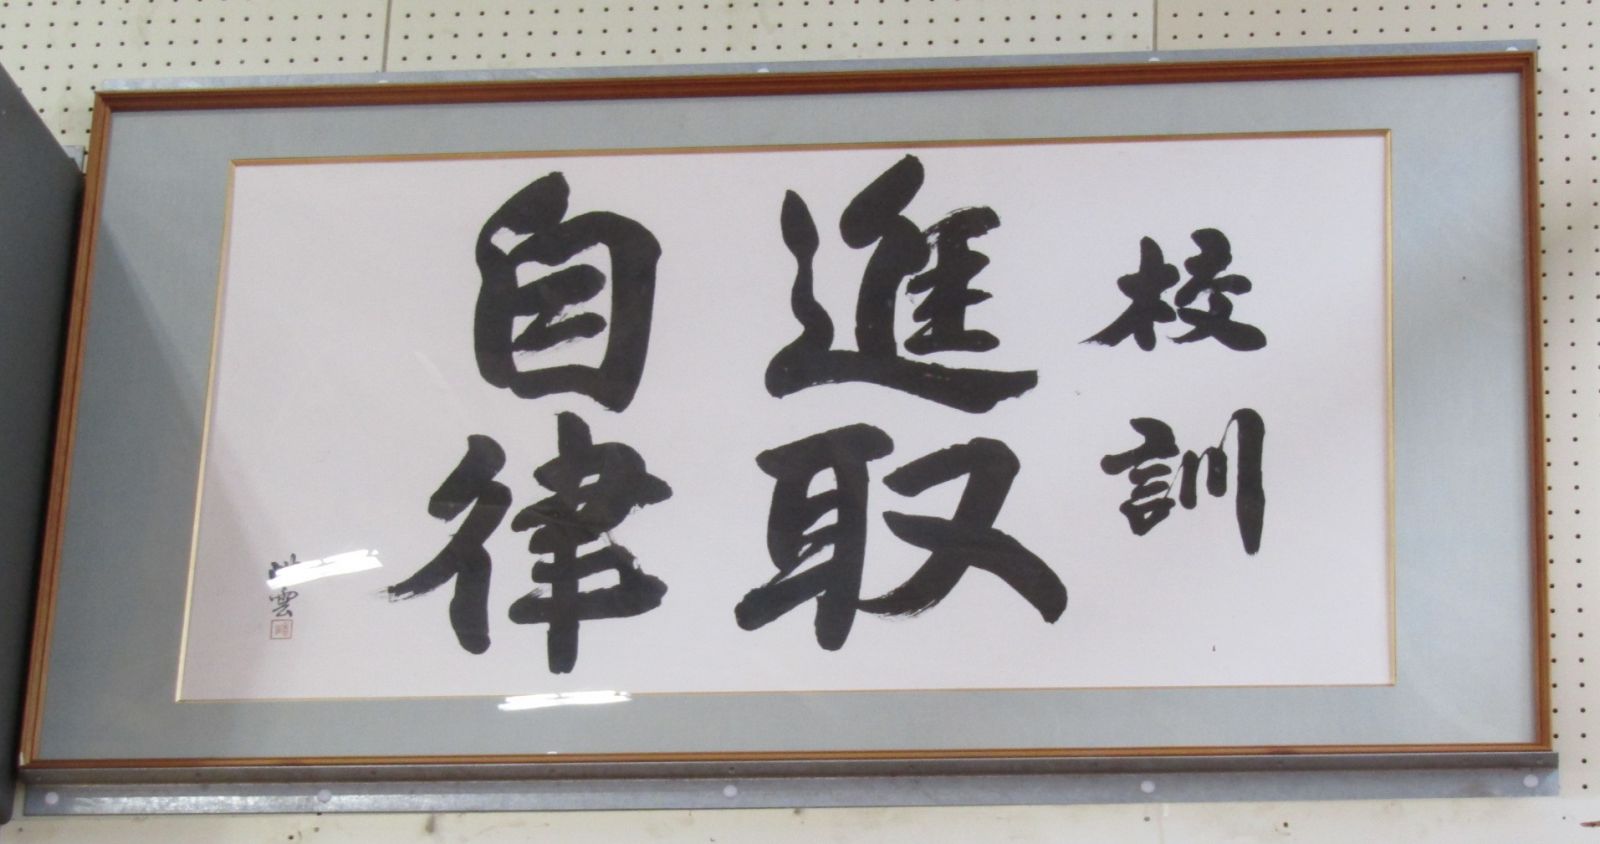 校訓
進取
自律
雲